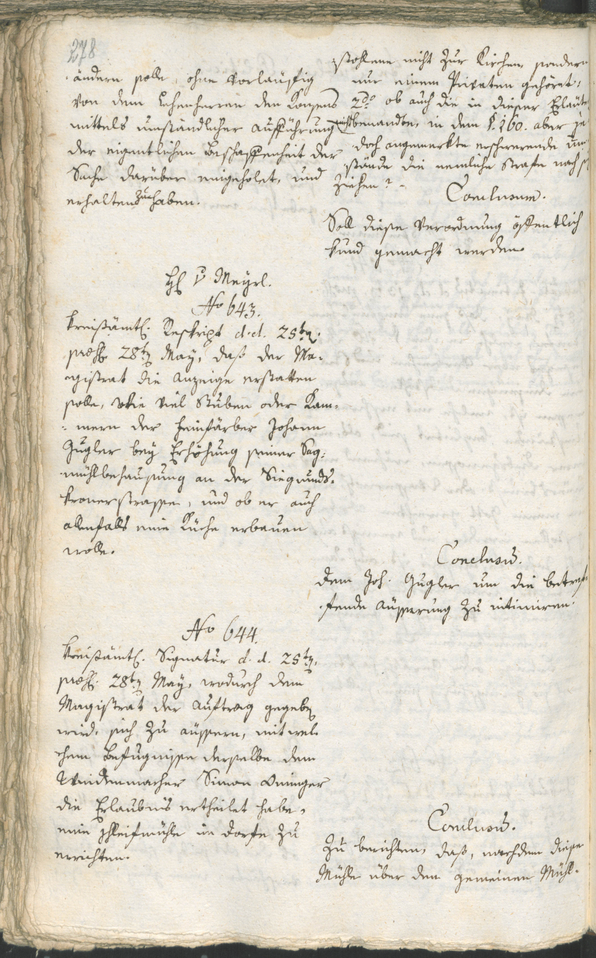 278
ändern solle, ohne vorläuffig
von dem Lehenherren den Konsens
mittels umständlicher Aufführung
der eigentlichen Beschaffenheit der
Sache darüber eingeholet, und
erhalten zu haben.
stohlene nicht zur Kirchen sondern
nur einem Privaten gehöret,
2do ob auch die in dieser Erläute
benandte, in dem §. 160. aber je
doch angemerkte erschwerende Um
stände die nemliche Strafe nach s
ziehen?
Conclusum.
Soll diese Verordnung öffentlich
kund gemacht werden.
H v Mayrl.
No 643.
Kreisämtl. Reskript d. d. 25ten
praes. 28ten May, daß der Ma-
gistrat die Anzeige erstatten
solle, wie viel Stuben oder Kam-
mern der Feinfärber Johann
Gugler bey Erhöhung seiner Sag-
mühlbehausung an der Siegmunds-
kronerstrasse, und ob er auch
allenfalls eine Küche erbauen
wolle.
Conclusum.
dem Joh. Gugler um die betref
fende Äusserung zu intimiren.
No 644.
Kreisämtl. Signatur d. d. 25ten
praes. 28ten May, wodurch dem
Magistrat der Auftrag gegeben
wird, sich zu äussern, mit wel-
chem Befugnisse derselbe dem
Windenmacher Simon
die Erlaubnis ertheilet habe,
eine Schleifmühle im Dorfe zu
errichten.
Conclusum.
Zu berichten, daß, nachdem diese
Mühle über den gemeinen Mühl-